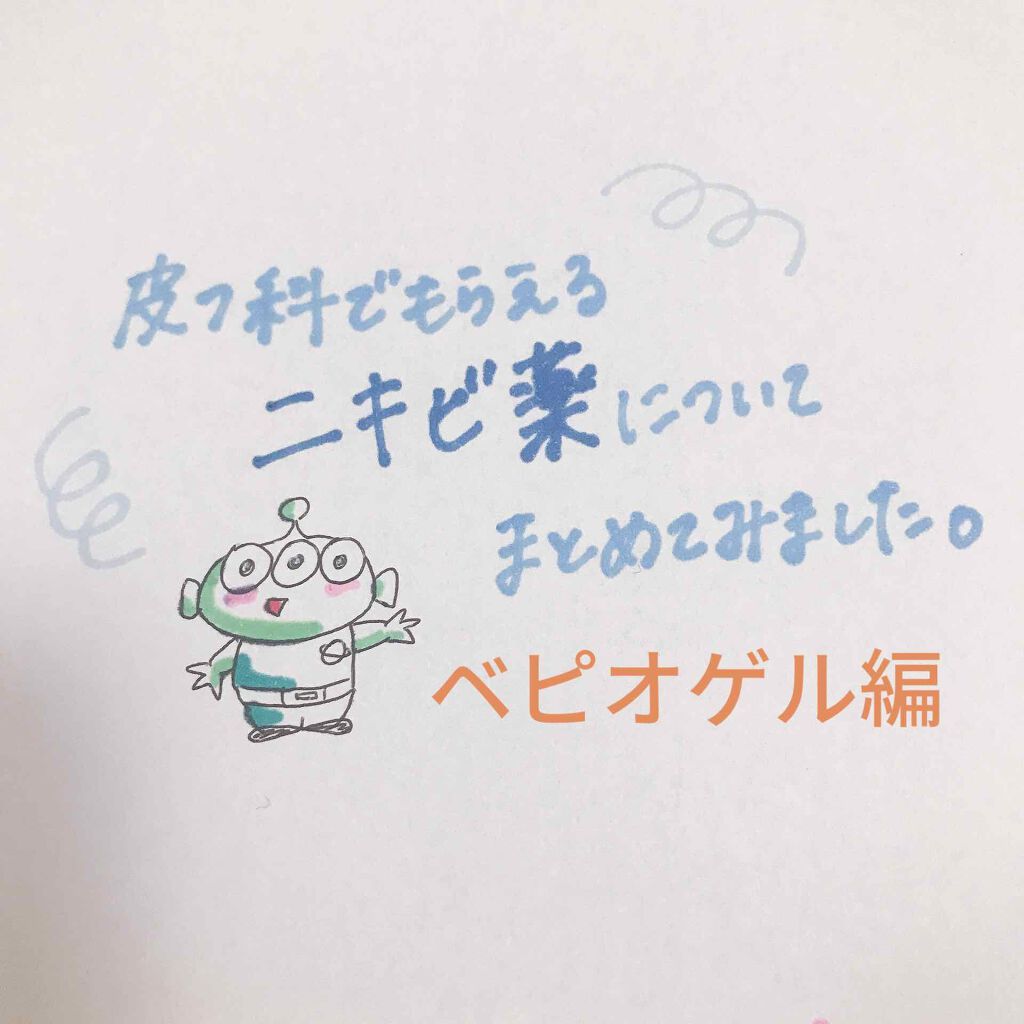 皮フ科でもらえる
ニキビ薬について
まとめてみました。
ベピオゲル編